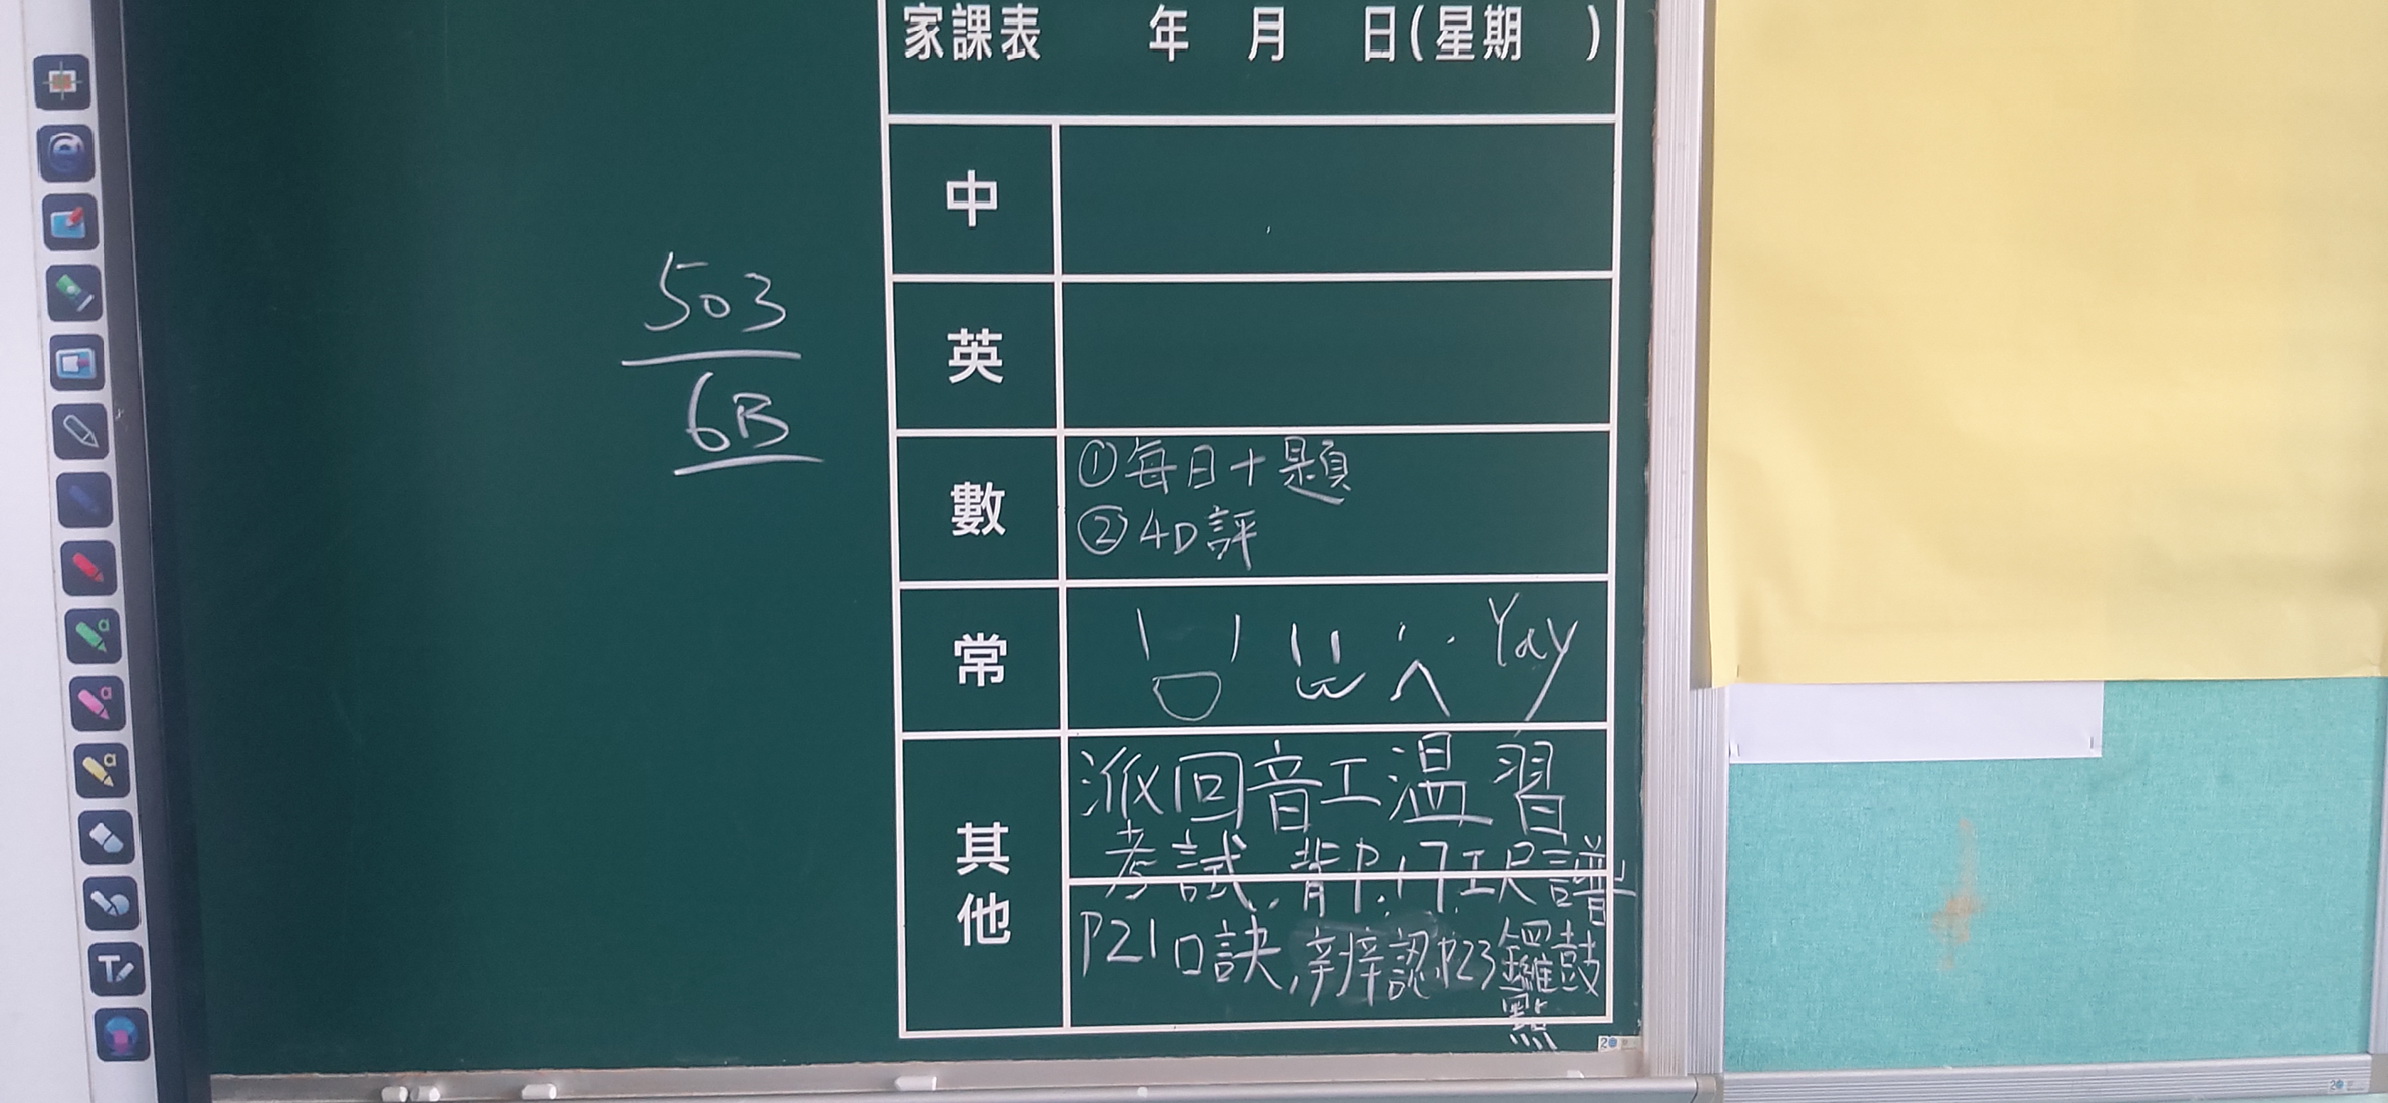 家課表 年 月 日(星期 )
503
6B
中
英
數
①每日十題
②4D評
常
Yay
其他
派回音工溫習
考試,背P.17工尺譜
P21口訣,辨認P23鑼鼓
點